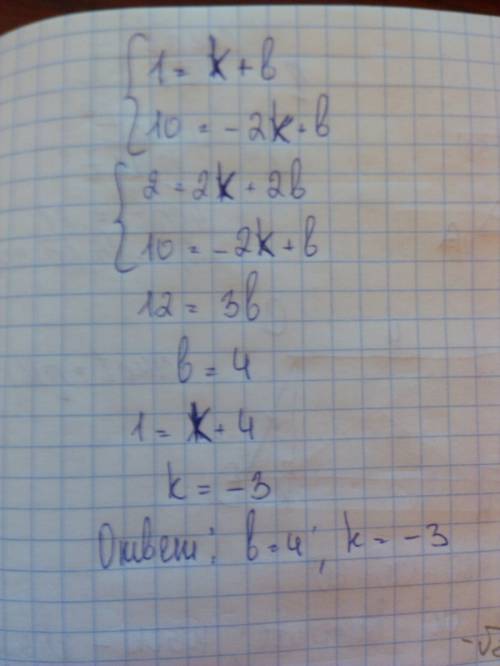 1 = k + b
10 = -2k + b
2 = 2k + 2b
10 = -2k + b
12 = 3b
b = 4
1 = k + 4
k = -3
Ответ: b = 4; k = -3
-√2